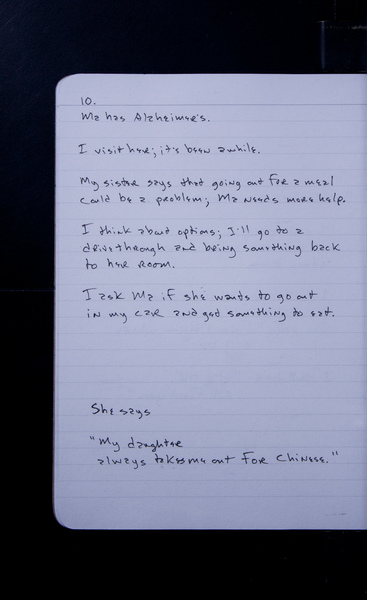 10.
Ma has Alzheimer's.
I visit her; it's been awhile.
My sister says that going out for a meal
could be a problem; Ma needs more help.
I think about options; I'll go to a
drive through and bring something back
to her room.
I ask Ma if she wants to go out
in my car and get something to eat.
She says
"My daughter
always takes me out for Chinese."